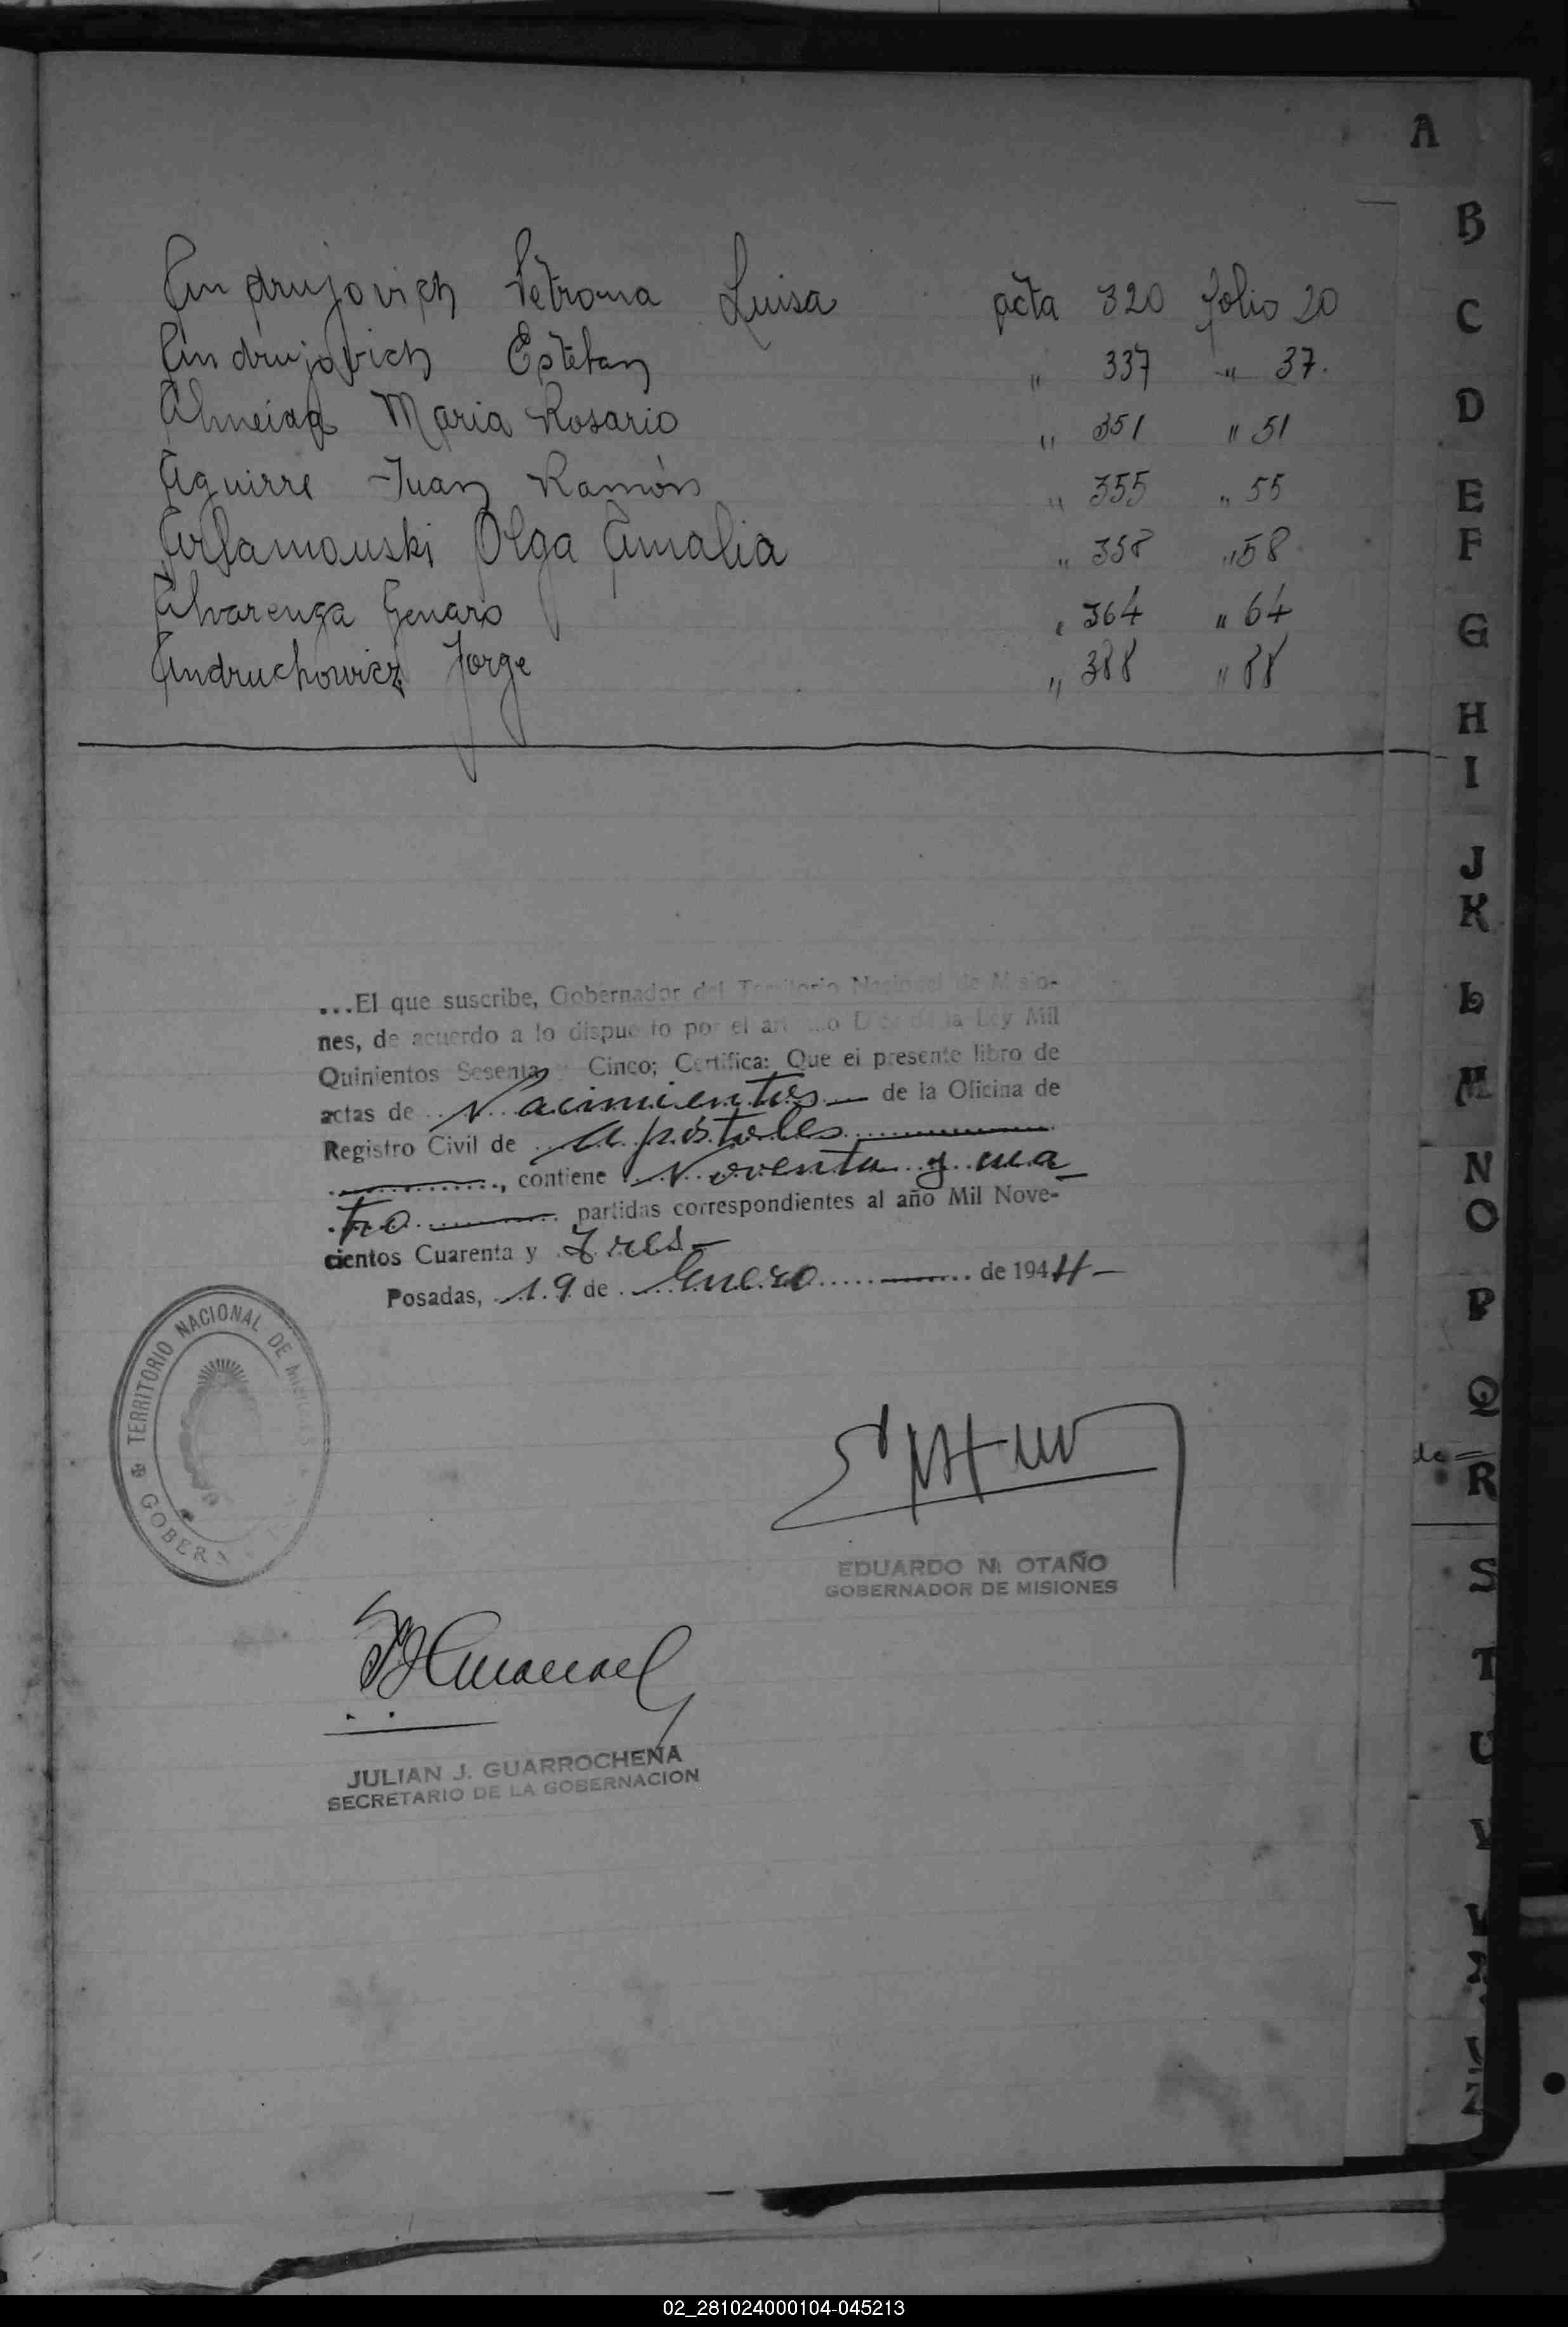 Andrujovich Petrona Luisa acta 320 folio 20
Andrujovich Esteban " 337 " 37.
Almeida Maria Rosario " 351 " 51
Aguirre Juan Ramón " 355 " 55
Olga Amalia " 358 " 58
Alvarenga Genaro " 364 " 64
Andruchowicz Jorge " 388 " 88
...El que suscribe, Gobernador del Territorio Nacional de Misio-
nes, de acuerdo a lo dispuesto por el de la Ley Mil
Quinientos Sesenta y Cinco; Certifica: Que el presente libro de
actas de Nacimientos de la Oficina de
Registro Civil de Apóstoles
, contiene Noventa y cua
tro partidas correspondientes al año Mil Nove-
cientos Cuarenta y Tres
Posadas, 19 de Enero de 1944
TERRITORIO NACIONAL DE MISIONES
GOBER
EDUARDO N. OTAÑO
GOBERNADOR DE MISIONES
JULIAN J. GUARROCHENA
SECRETARIO DE LA GOBERNACION
A
B
C
D
E
F
G
H
I
J
K
L
M
N
O
P
Q
de
R
S
T
U
V
02_281024000104-045213